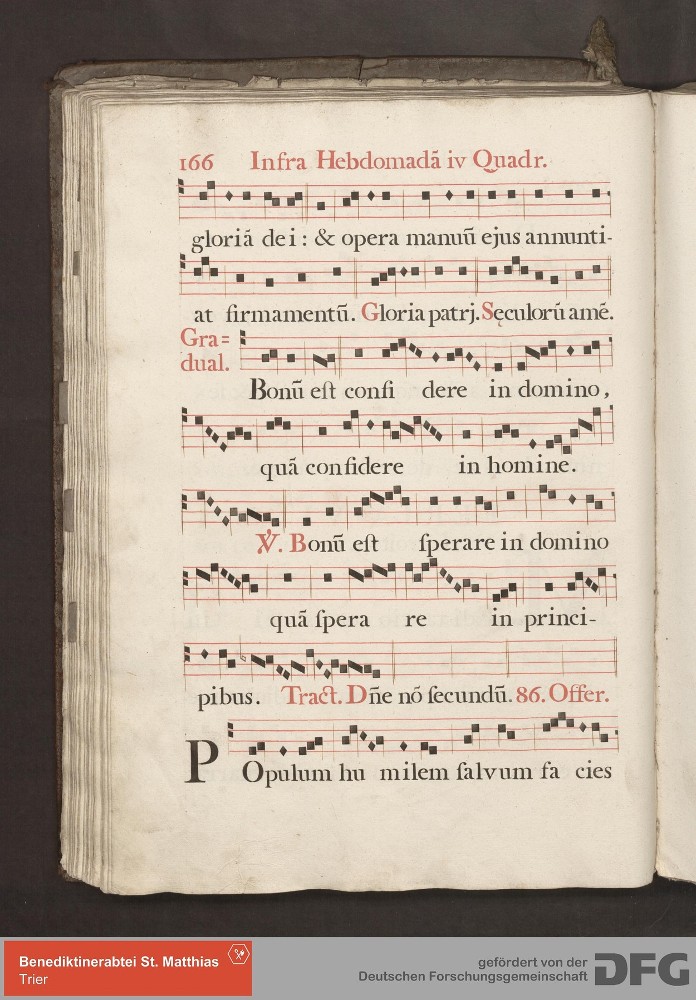 166 Infra Hebdomadã iv Quadr.
gloriã dei : & opera manuũ ejus annunti-
at firmamentũ. Gloria patrj. Sęculorũ amẽ.
Gra=
dual.
Bonũ est confi dere in domino,
quã confidere in homine.
℣. Bonũ est sperare in domino
quã spera re in princi-
pibus. Tract. Dñe nõ secundũ. 86. Offer.
POpulum hu milem salvum fa cies
Benediktinerabtei St. Matthias
Trier
gefördert von der
Deutschen Forschungsgemeinschaft
DFG